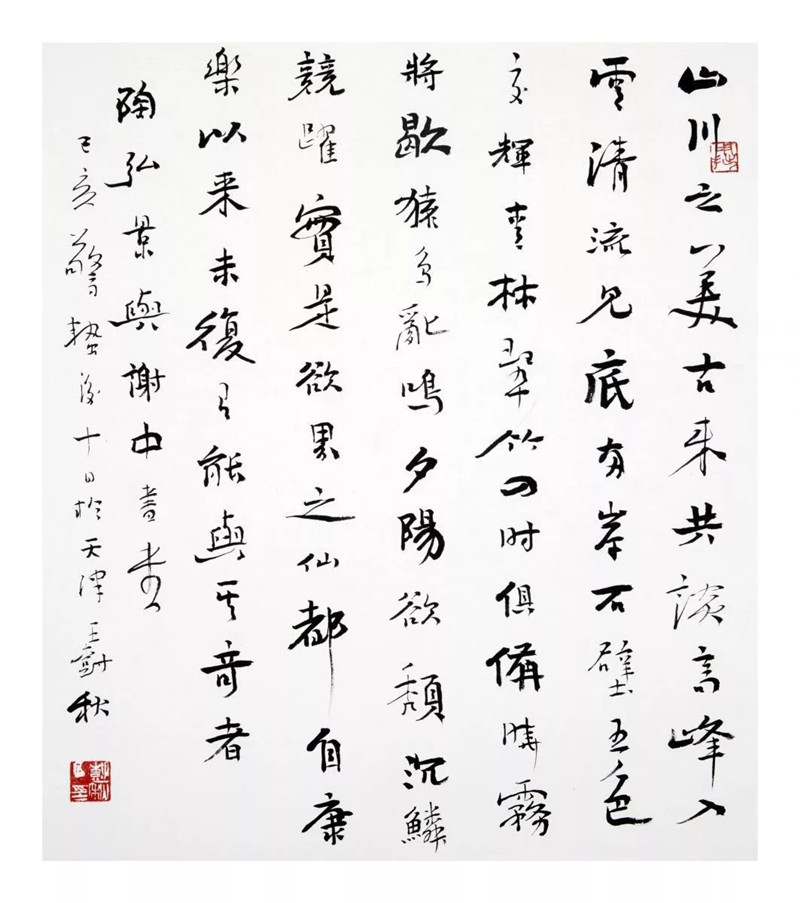 山川之美古来共談高峰入
雲清流見底兩岸石壁五色
交輝青林翠竹四时俱備曉霧
將歇猿鳥亂鳴夕陽欲頹沉鱗
競躍實是欲界之仙都自康
樂以来未復有能與其奇者
陶弘景與謝中書書
己亥驚蟄後十日於天津王樹秋